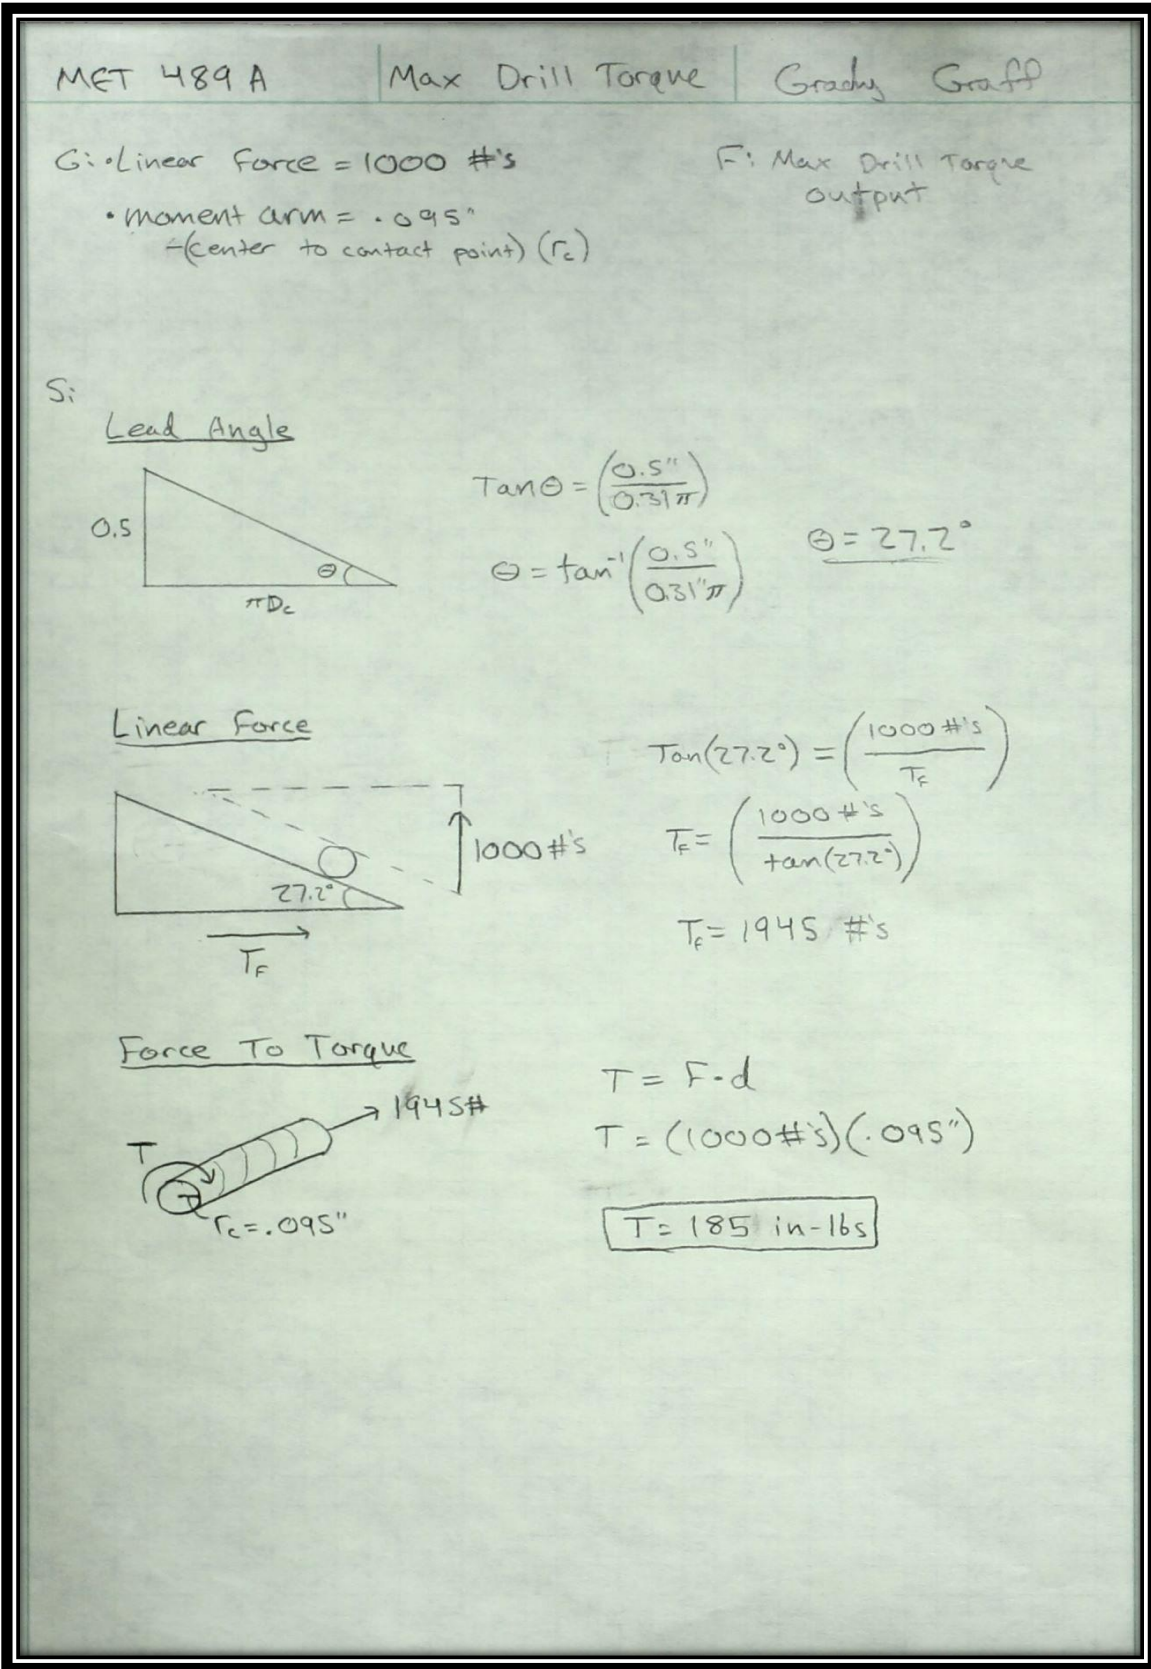 MET 489 A | Max Drill Torque | Grady Graff
G: •Linear Force = 1000 #'s
F: Max Drill Torque
output
• moment arm = .095"
-(center to contact point) (rc)
S:
Lead Angle
0.5
Θ
πDc
TanΘ = (0.5"/0.31π)
Θ = tan⁻¹(0.5"/0.31"π)
Θ = 27.2°
Linear Force
1000 #'s
27.2°
TF
Tan(27.2°) = (1000 #'s/TF)
TF = (1000 #'s/tan(27.2°))
TF = 1945 #'s
Force To Torque
1945#
T
rc = .095"
T = F·d
T = (1000#'s)(.095")
T = 185 in-lbs